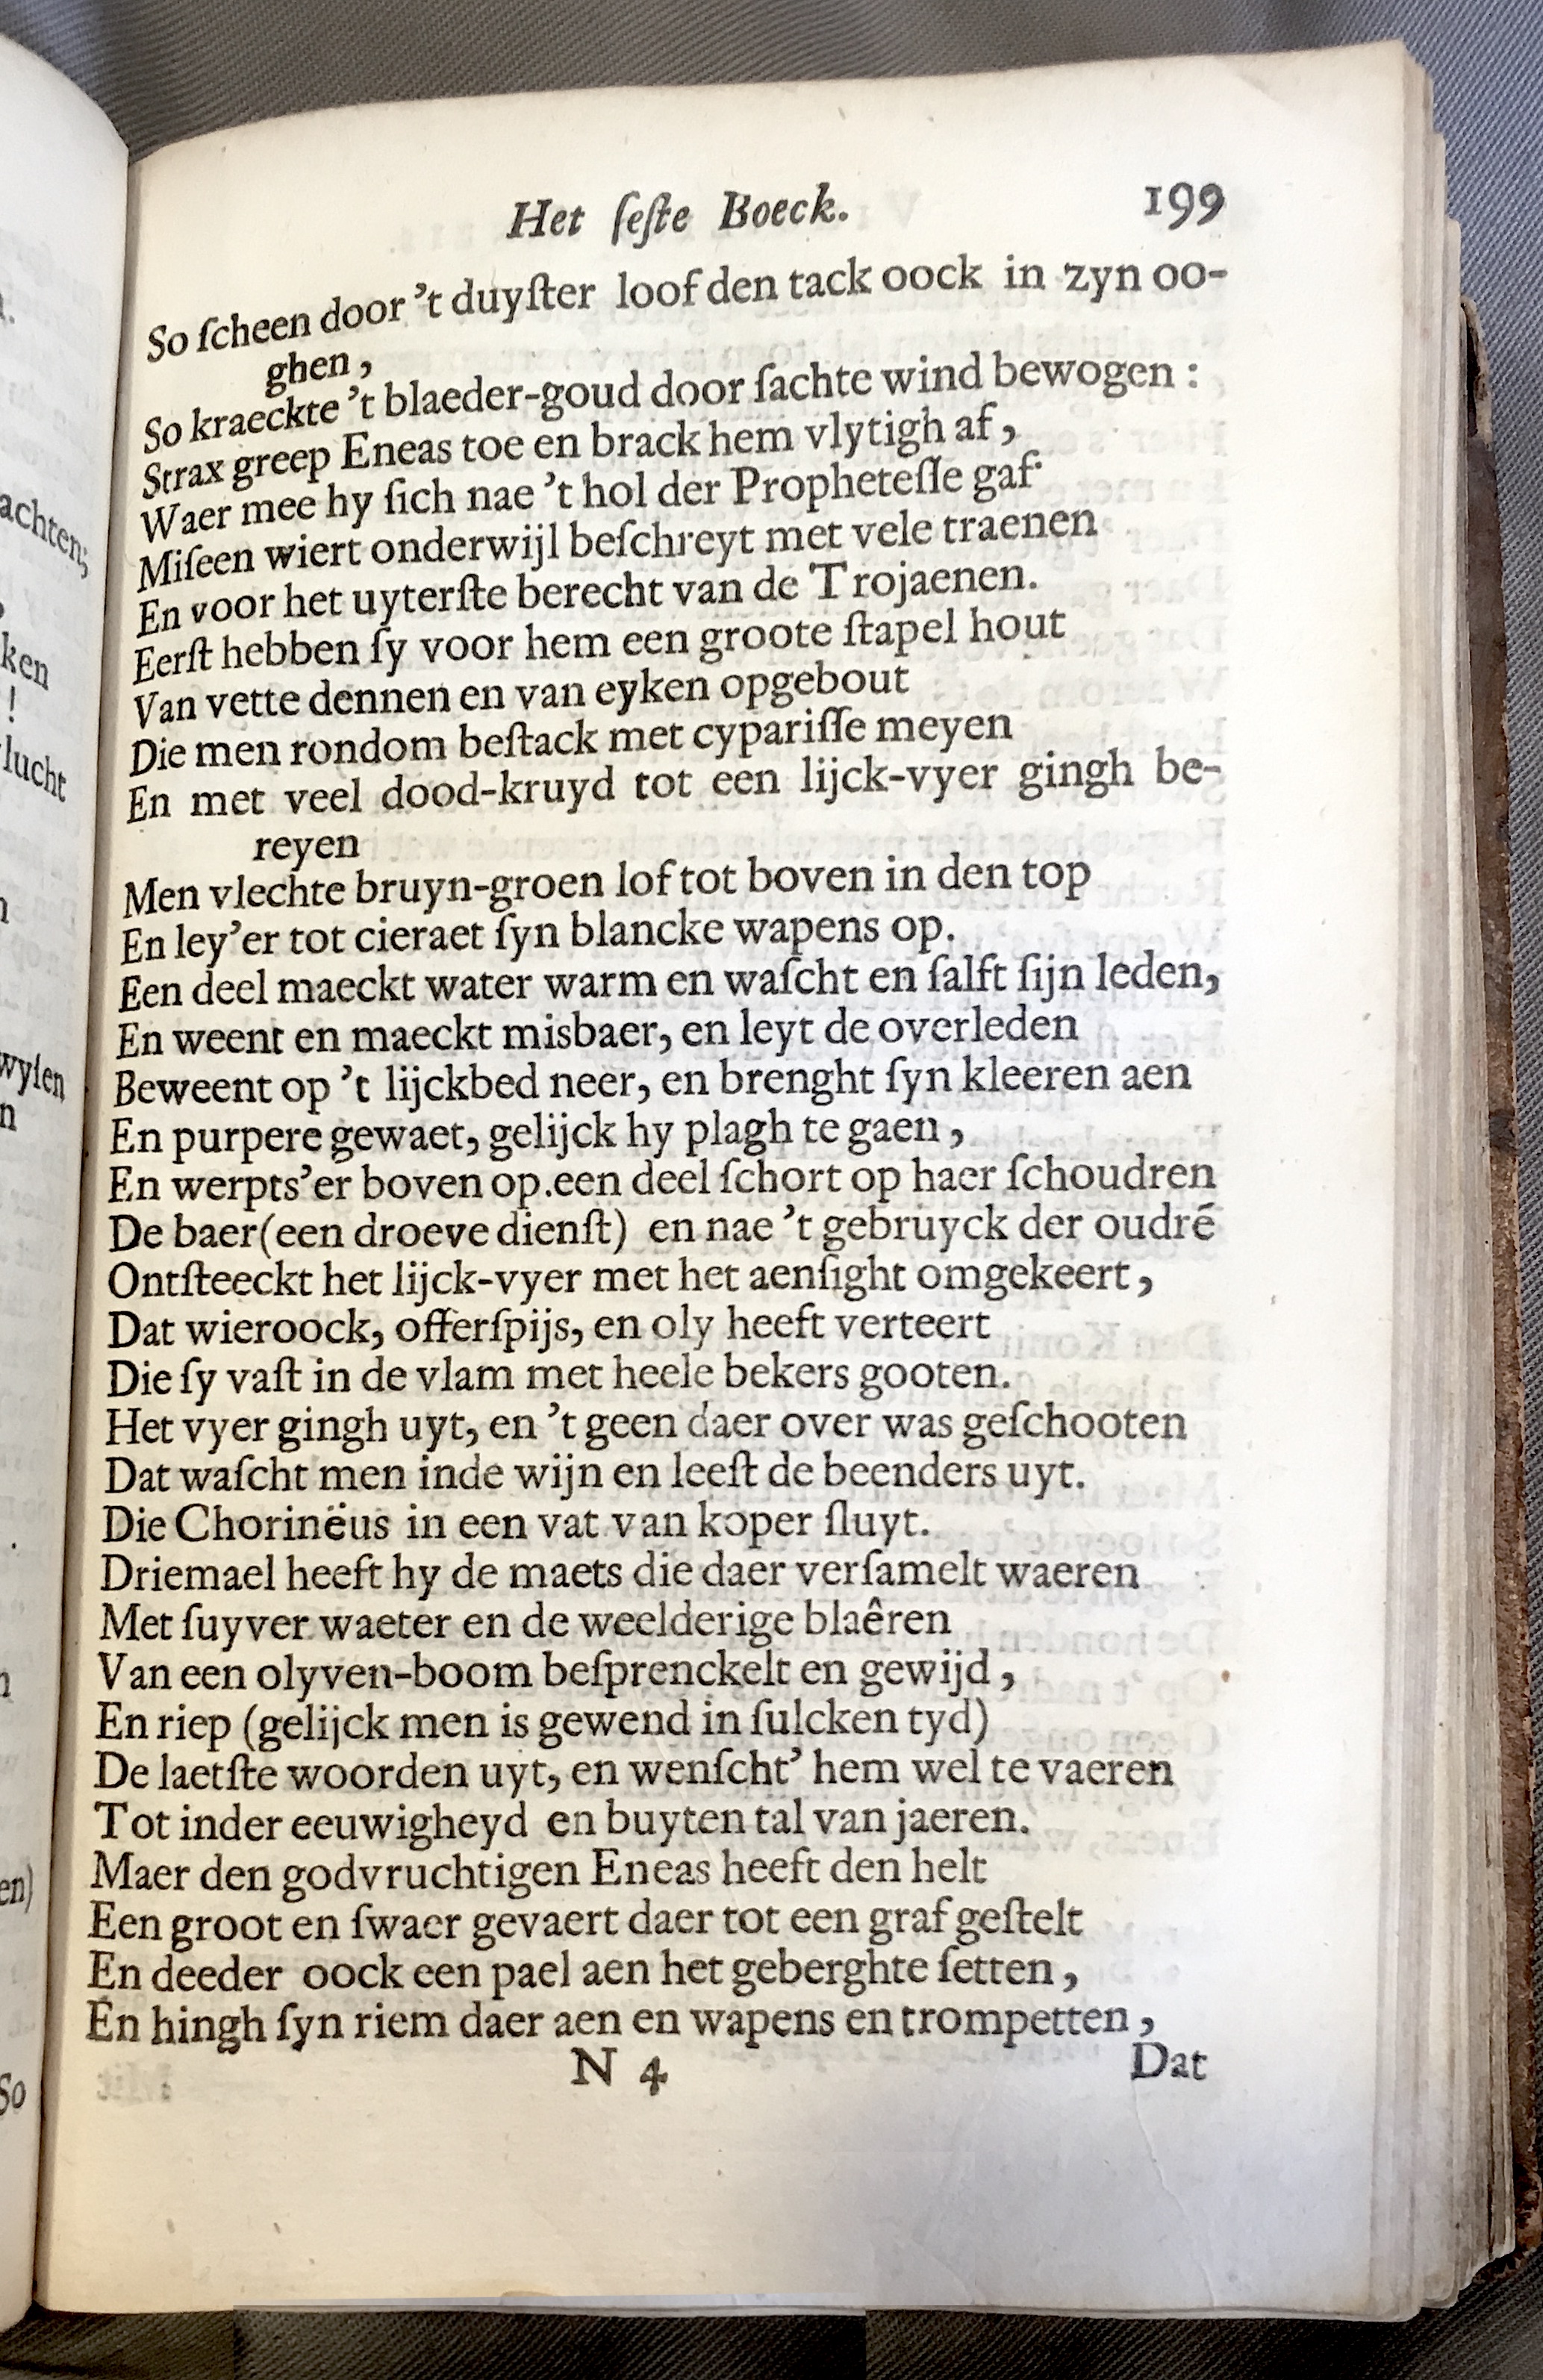 Het ſeſte Boeck. 199
So ſcheen door 't duyſter loof den tack oock in zyn oo-
ghen,
So kraeckte 't blaeder-goud door ſachte wind bewogen:
Strax greep Eneas toe en brack hem vlytigh af,
Waer mee hy ſich nae 't hol der Propheteſſe gaf
Miſeen wiert onderwijl beſchreyt met vele traenen
En voor het uyterſte berecht van de Trojaenen.
Eerſt hebben ſy voor hem een groote ſtapel hout
Van vette dennen en van eyken opgebout
Die men rondom beſtack met cypariſſe meyen
En met veel dood-kruyd tot een lijck-vyer gingh be-
reyen
Men vlechte bruyn-groen lof tot boven in den top
En ley'er tot cieraet ſyn blancke wapens op.
Een deel maeckt water warm en waſcht en ſalft ſijn leden,
En weent en maeckt misbaer, en leyt de overleden
Beweent op 't lijckbed neer, en brenght ſyn kleeren aen
En purpere gewaet, gelijck hy plagh te gaen,
En werpts'er boven op. een deel ſchort op haer ſchoudren
De baer (een droeve dienſt) en nae 't gebruyck der oudrē
Ontſteeckt het lijck-vyer met het aenſight omgekeert,
Dat wieroock, offerſpijs, en oly heeft verteert
Die ſy vaſt in de vlam met heele bekers gooten.
Het vyer gingh uyt, en 't geen daer over was geſchooten
Dat waſcht men inde wijn en leeſt de beenders uyt.
Die Chorinëus in een vat van koper ſluyt.
Driemael heeft hy de maets die daer verſamelt waeren
Met ſuyver waeter en de weelderige blaêren
Van een olyven-boom beſprenckelt en gewijd,
En riep (gelijck men is gewend in ſulcken tyd)
De laetſte woorden uyt, en wenſcht' hem wel te vaeren
Tot inder eeuwigheyd en buyten tal van jaeren.
Maer den godvruchtigen Eneas heeft den helt
Een groot en ſwaer gevaert daer tot een graf geſtelt
En deeder oock een pael aen het geberghte ſetten,
En hingh ſyn riem daer aen en wapens en trompetten,
N 4 Dat
achten;
ken
!
lucht
wylen
n
en)
So